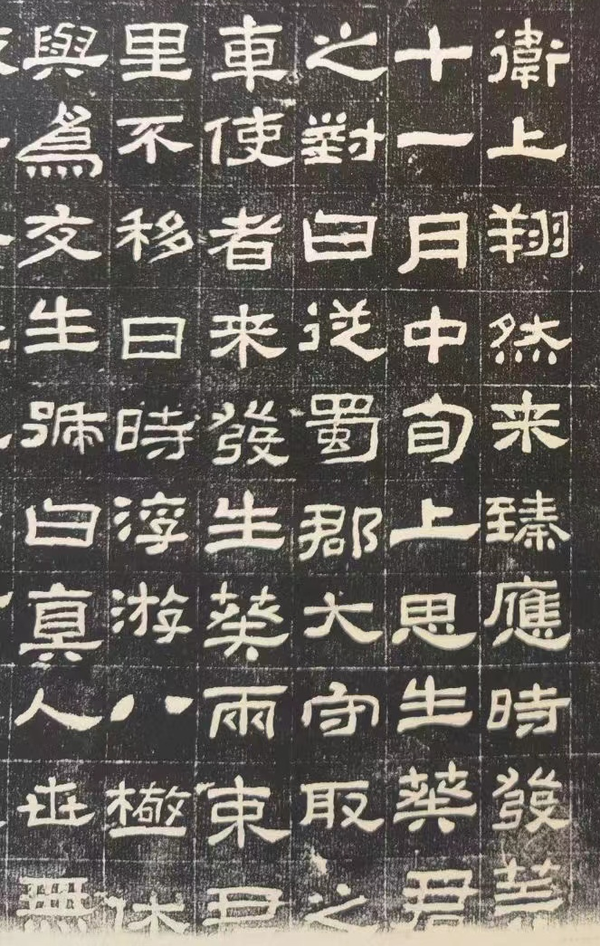 衛上翔然来臻應時發筭
十一月中旬上思生葵君
之對曰從蜀郡大守取之
車使者来發生葵兩束君
里不移日時浮游八極休
與為友生號曰真人世無